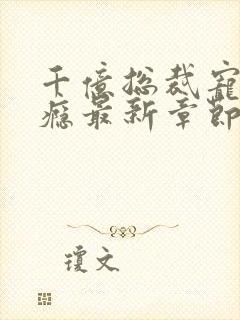 千億总裁寵
癮最新章節
瓊文